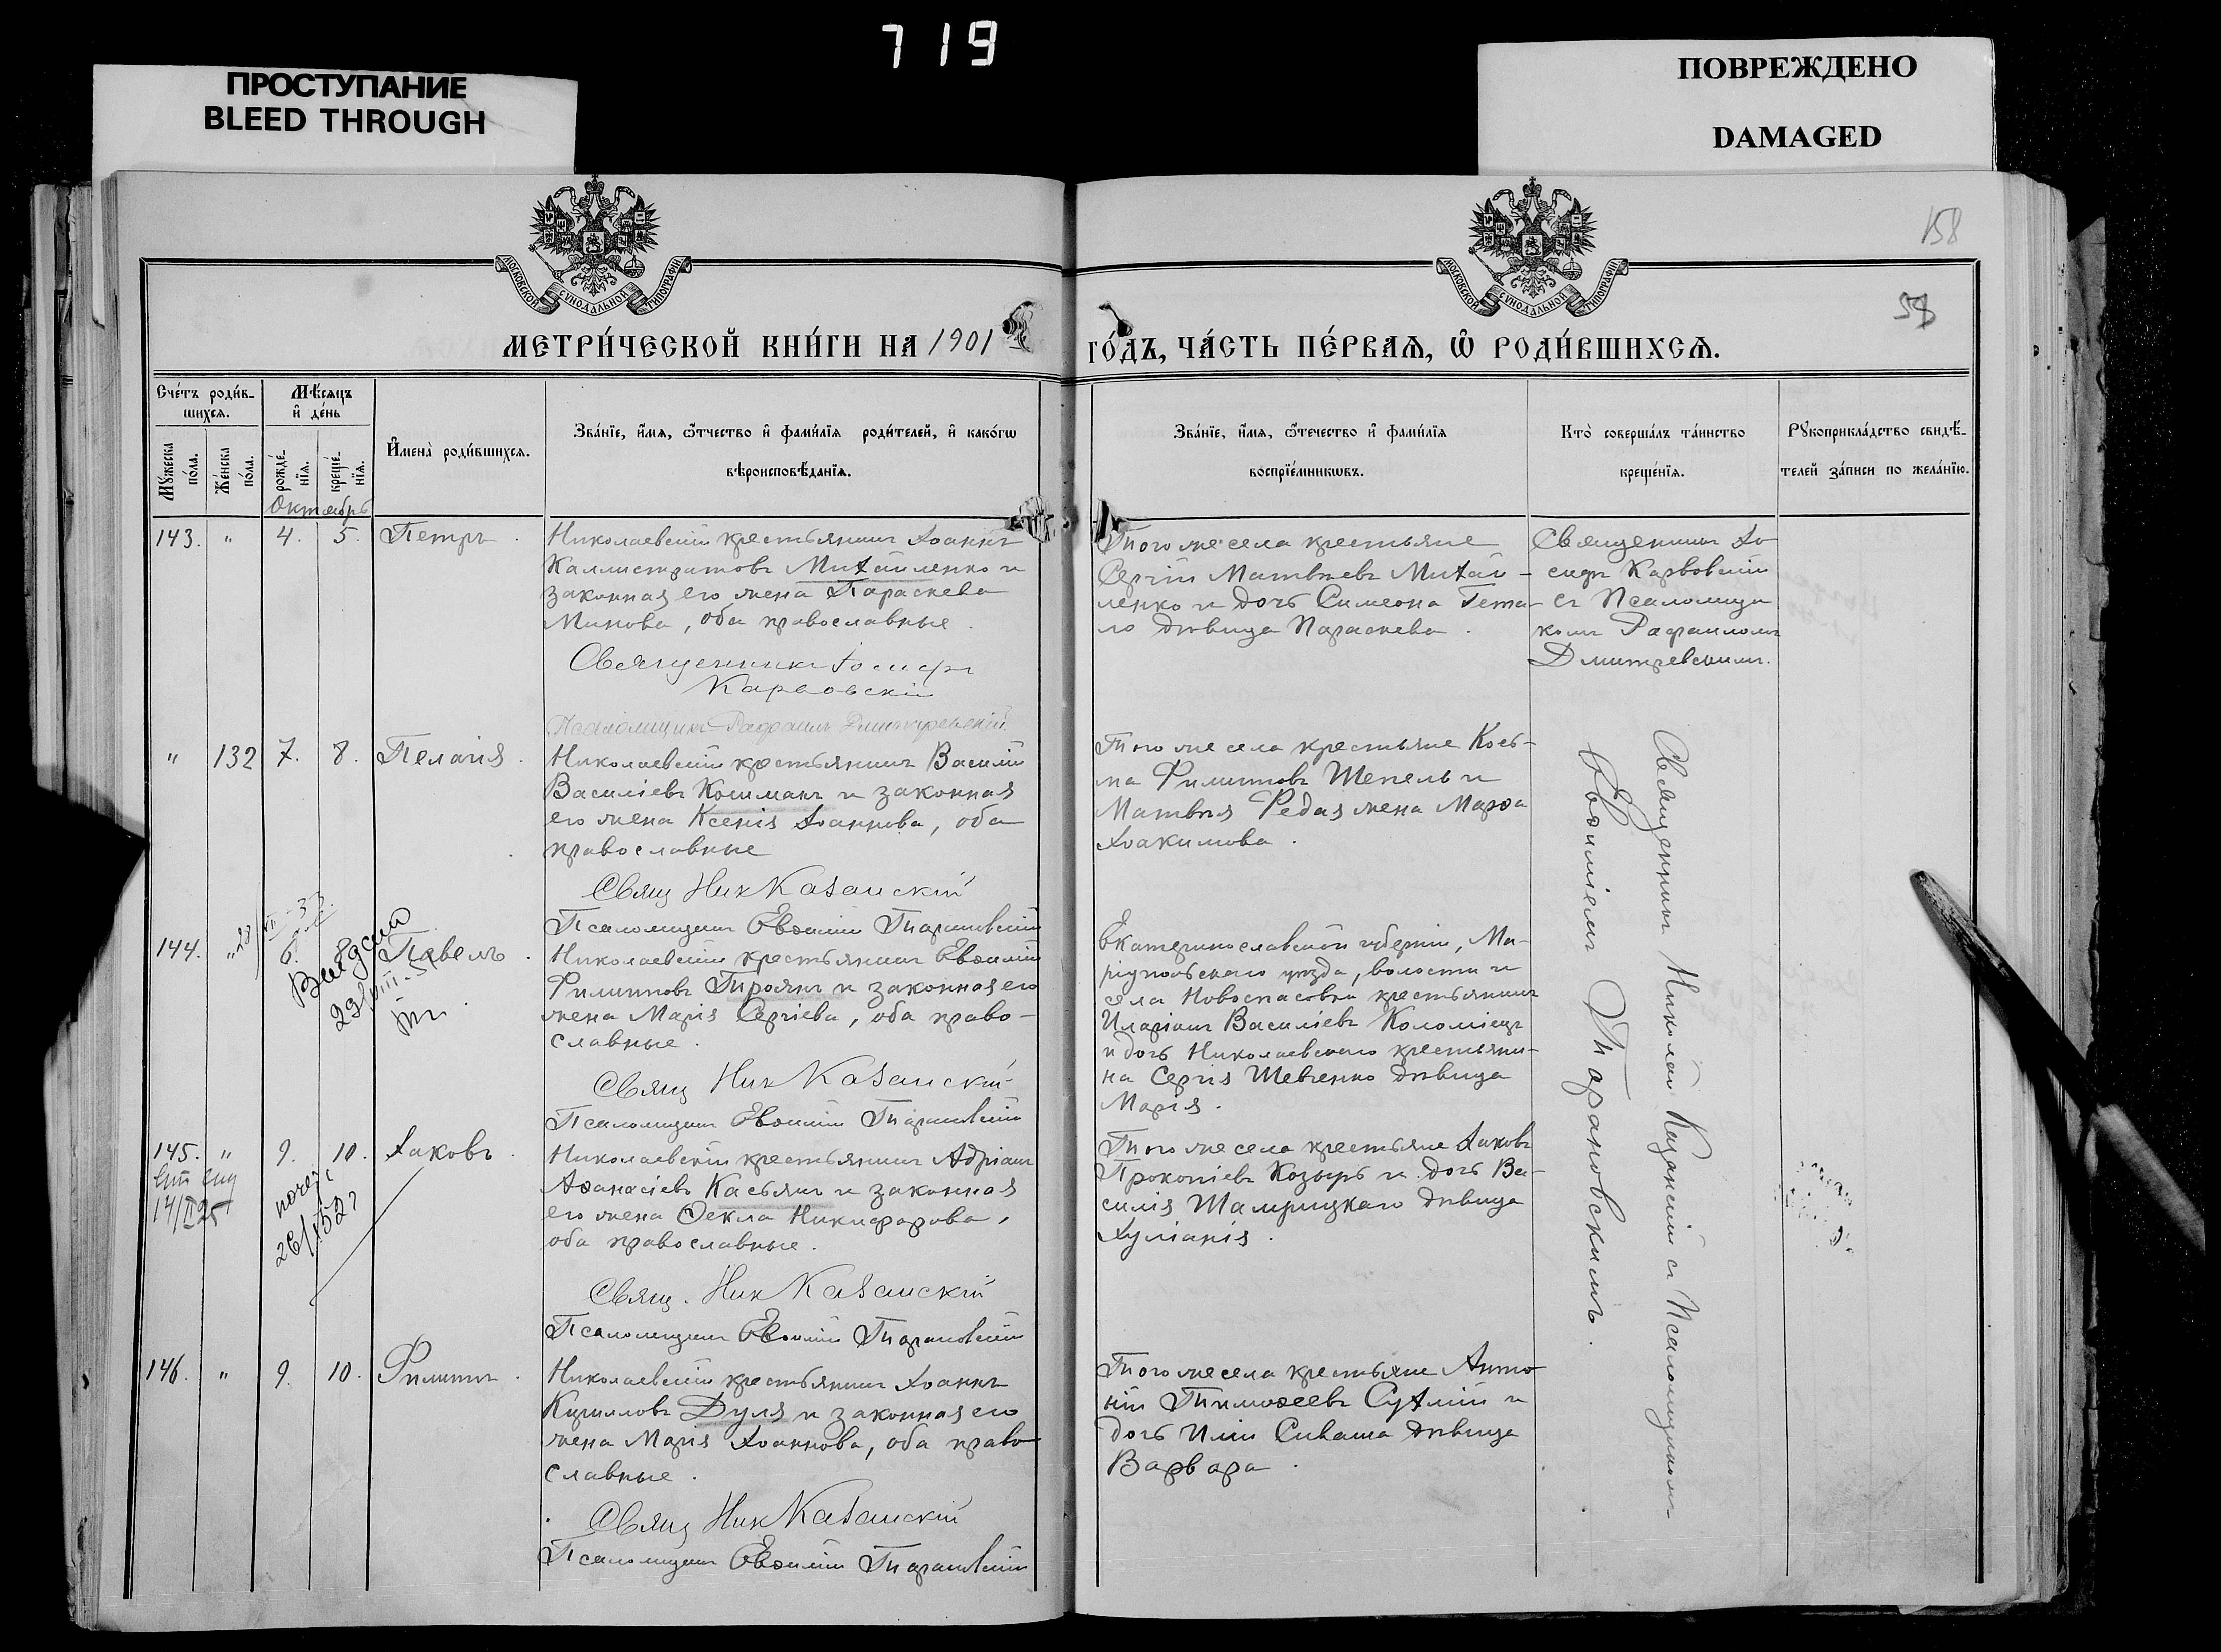 719
ПРОСТУПАНИЕ
BLEED THROUGH
ПОВРЕЖДЕНО
DAMAGED
158
МОСКОВСКОЙ СѴНОДАЛЬНОЙ ТИПОГРАФІИ
МОСКОВСКОЙ СѴНОДАЛЬНОЙ ТИПОГРАФІИ
МЕТРИ́ЧЕСКОЙ КНИ́ГИ НА 1901
ГО́ДЪ, ЧА́СТЬ ПЕ́РВАѦ, Ѡ҆ РОДИ́ВШИХСѦ.
Сче́тъ роди́в-
шихсѧ.
Мꙋ́жеска по́ла.
Же́нска по́ла.
Мѣ́сѧцъ
и҆ де́нь
рожде́-нїѧ.
креще́-нїѧ.
И҆мена̀ роди́вшихсѧ.
Зва́нїе, и҆́мѧ, ѻ҆́тчество и҆ фами́лїѧ роди́телей, и҆ како́гѡ
вѣроисповѣ́данїѧ.
Зва́нїе, и҆́мѧ, ѻ҆те́чество и҆ фами́лїѧ
воспрїе́мникѡвъ.
Кто̀ соверша́лъ та́инство
креще́нїѧ.
Рꙋкоприкла́дство свидѣ́-
телей за́писи по жела́нїю.
Октябрь
143. " 4. 5. Петръ.
Николаевскій крестьянинъ Іоаннъ
Каллистратовъ Михайленко и
законная его жена Параскева
Минова, оба православные.
Священникъ Іосифъ
Карвовскій
Псаломщикъ Рафаилъ Дмитревскій
Того же села крестьяне
Сергій Матвѣевъ Михай-
ленко и дочь Симеона Гета-
ло дѣвица Параскева.
Священникъ Іо-
сифъ Карвовскій
съ Псаломщи
комъ Рафаиломъ
Дмитревскимъ.
" 132 7. 8. Пелагія.
Николаевскій крестьянинъ Василій
Василіевъ Кошманъ и законная
его жена Ксенія Іоаннова, оба
православные
Свящ Ник Казанскій
Псаломщикъ Евѳимій Тарановскій
Того же села крестьяне Кось-
ма Филипповъ Шепель и
Матвѣя Редая жена Марѳа
Іоакимова.
Священникъ Николай Казанскій съ Псаломщикомъ
Евѳиміемъ Тарановскимъ.
144. " 6. Павелъ.
Николаевскій крестьянинъ Евѳимій
Филипповъ Троянъ и законная его
жена Марія Сергіева, оба право-
славные.
Свящ Ник Казанскій
Псаломщикъ Евѳимій Тарановскій
Екатеринославской губерніи, Ма-
ріупольскаго уѣзда, волости и
села Новоспасовки крестьянинъ
Иларіонъ Василіевъ Коломіецъ
и дочь Николаевскаго крестьяни-
на Сергія Шевченко дѣвица
Марія.
145. " 9. 10. Іаковъ.
14/II 25
Николаевскій крестьянинъ Адріанъ
Аѳанасіевъ Касьянъ и законная
его жена Ѳекла Никифорова,
оба православные.
Свящ. Ник Казанскій
Псаломщикъ Евѳимій Тарановскій
Того же села крестьяне Іаковъ
Прокопіевъ Козырь и дочь Ва-
силія Шамрицкаго дѣвица
Іуліанія.
146. " 9. 10. Филиппъ.
Николаевскій крестьянинъ Іоаннъ
Кирилловъ Дуля и законная его
жена Марія Іоаннова, оба право
славные.
Свящ Ник Казанскій
Псаломщикъ Евѳимій Тарановскій
Того же села крестьяне Анто-
ній Тимоѳеевъ Сухлій и
дочь Иліи Сиваша дѣвица
Варвара.